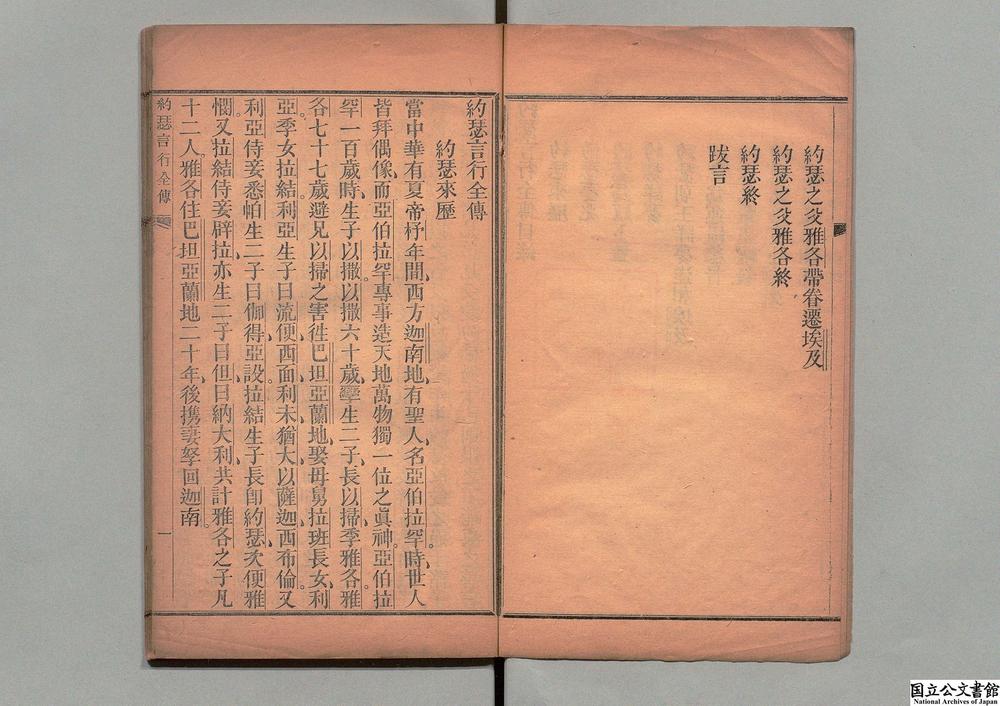 約瑟之父雅各帶眷遷埃及
約瑟之父雅各終
約瑟終
跋言
約瑟言行全傳
約瑟來歷
當中華有夏帝杼年間、西方迦南地、有聖人、名亞伯拉罕。時世人
皆拜偶像、而亞伯拉罕專事造天地萬物獨一位之眞神。亞伯拉
罕一百歲時、生子以撒。以撒六十歲、孿生二子、長以掃、季雅各。雅
各七十七歲、避兄以掃之害、徃巴坦亞蘭地、娶母舅拉班長女利
亞、季女拉結。利亞生子曰流便、西面、利未、猶大、以薩迦、西布倫。又
利亞侍妾悉帕生二子、曰伽得、亞設。拉結生子、長卽約瑟、次便雅
憫。又拉結侍妾辟拉、亦生二子、曰但、曰納大利。共計雅各之子、凡
十二人。雅各住巴坦亞蘭地二十年後、携妻孥回迦南。
約瑟言行全傳
一
国立公文書館
National Archives of Japan